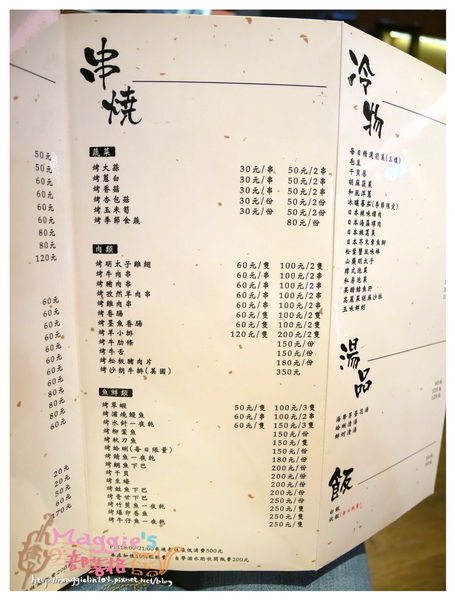 50元
50元
60元
60元
60元
80元
80元
120元
60元
60元
60元
60元
60元
80元
80元
60元
60元
60元
20元
50元
60元
170元
串燒
蔬菜
烤大蒜 30元/串 50元/2串
烤蔥白 30元/串 50元/2串
烤香菇 30元/串 50元/2串
烤杏包菇 30元/份 50元/2份
烤玉米筍 30元/份 50元/2份
烤季節食蔬 80元/份
肉類
烤明太子雞翅 60元/隻 100元/2隻
烤牛肉串 60元/串 100元/2串
烤豬肉串 60元/串 100元/2串
烤孜然羊肉串 60元/串 100元/2串
烤雞肉串 60元/串 100元/2串
烤香腸 60元/隻 100元/2隻
烤墨魚香腸 60元/隻 100元/2隻
烤羊小排 120元/隻 200元/2隻
烤牛肋條 150元/份
烤牛舌 150元/份
烤松板豬肉片 180元/份
烤沙朗牛排(美國) 350元
魚鮮類
烤草蝦 50元/隻 100元/3隻
烤蒲燒鰻魚 60元/串 100元/2串
烤水針一夜乾 60元/隻 150元/3隻
烤柳葉魚 150元/份
烤秋刀魚 150元/隻
烤蛤蜊(每日限量) 150元/份
烤鯖魚一夜乾 180元/份
烤鯛魚下巴 200元/份
烤干貝 200元/份
烤生蠔 200元/份
烤鮭魚下巴 200元/份
烤青甘下巴 200元/份
烤竹筴魚一夜乾 250元/隻
250元/隻
250元/隻
冷物
每日精選前菜(三樣)
毛豆
干貝唇
胡麻菠菜
和風洋蔥
日本辣味螺肉
日本海藻螺肉
日本芥末章魚卿
山藥明太子
韓式泡菜
私房泡菜
五味鮮蚵
湯品
蛤蜊清湯
鮮蚵清湯
飯
白飯
Maggie's
部落格
http://maggielin104.pixnet.net/blog